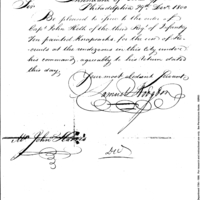 Sir
Philadelphia 29th Decr. 1800
Be pleased to furn to the order of
Capt. John Heth of the third Regt. of Infantry
Ten painted Knapsacks for the use of Re-
cruits at the rendezvous in this city under
his command, agreeably to his return dated
this day.
Your most obedient Servant
Samuel Hodgdon
Mr. John Harris